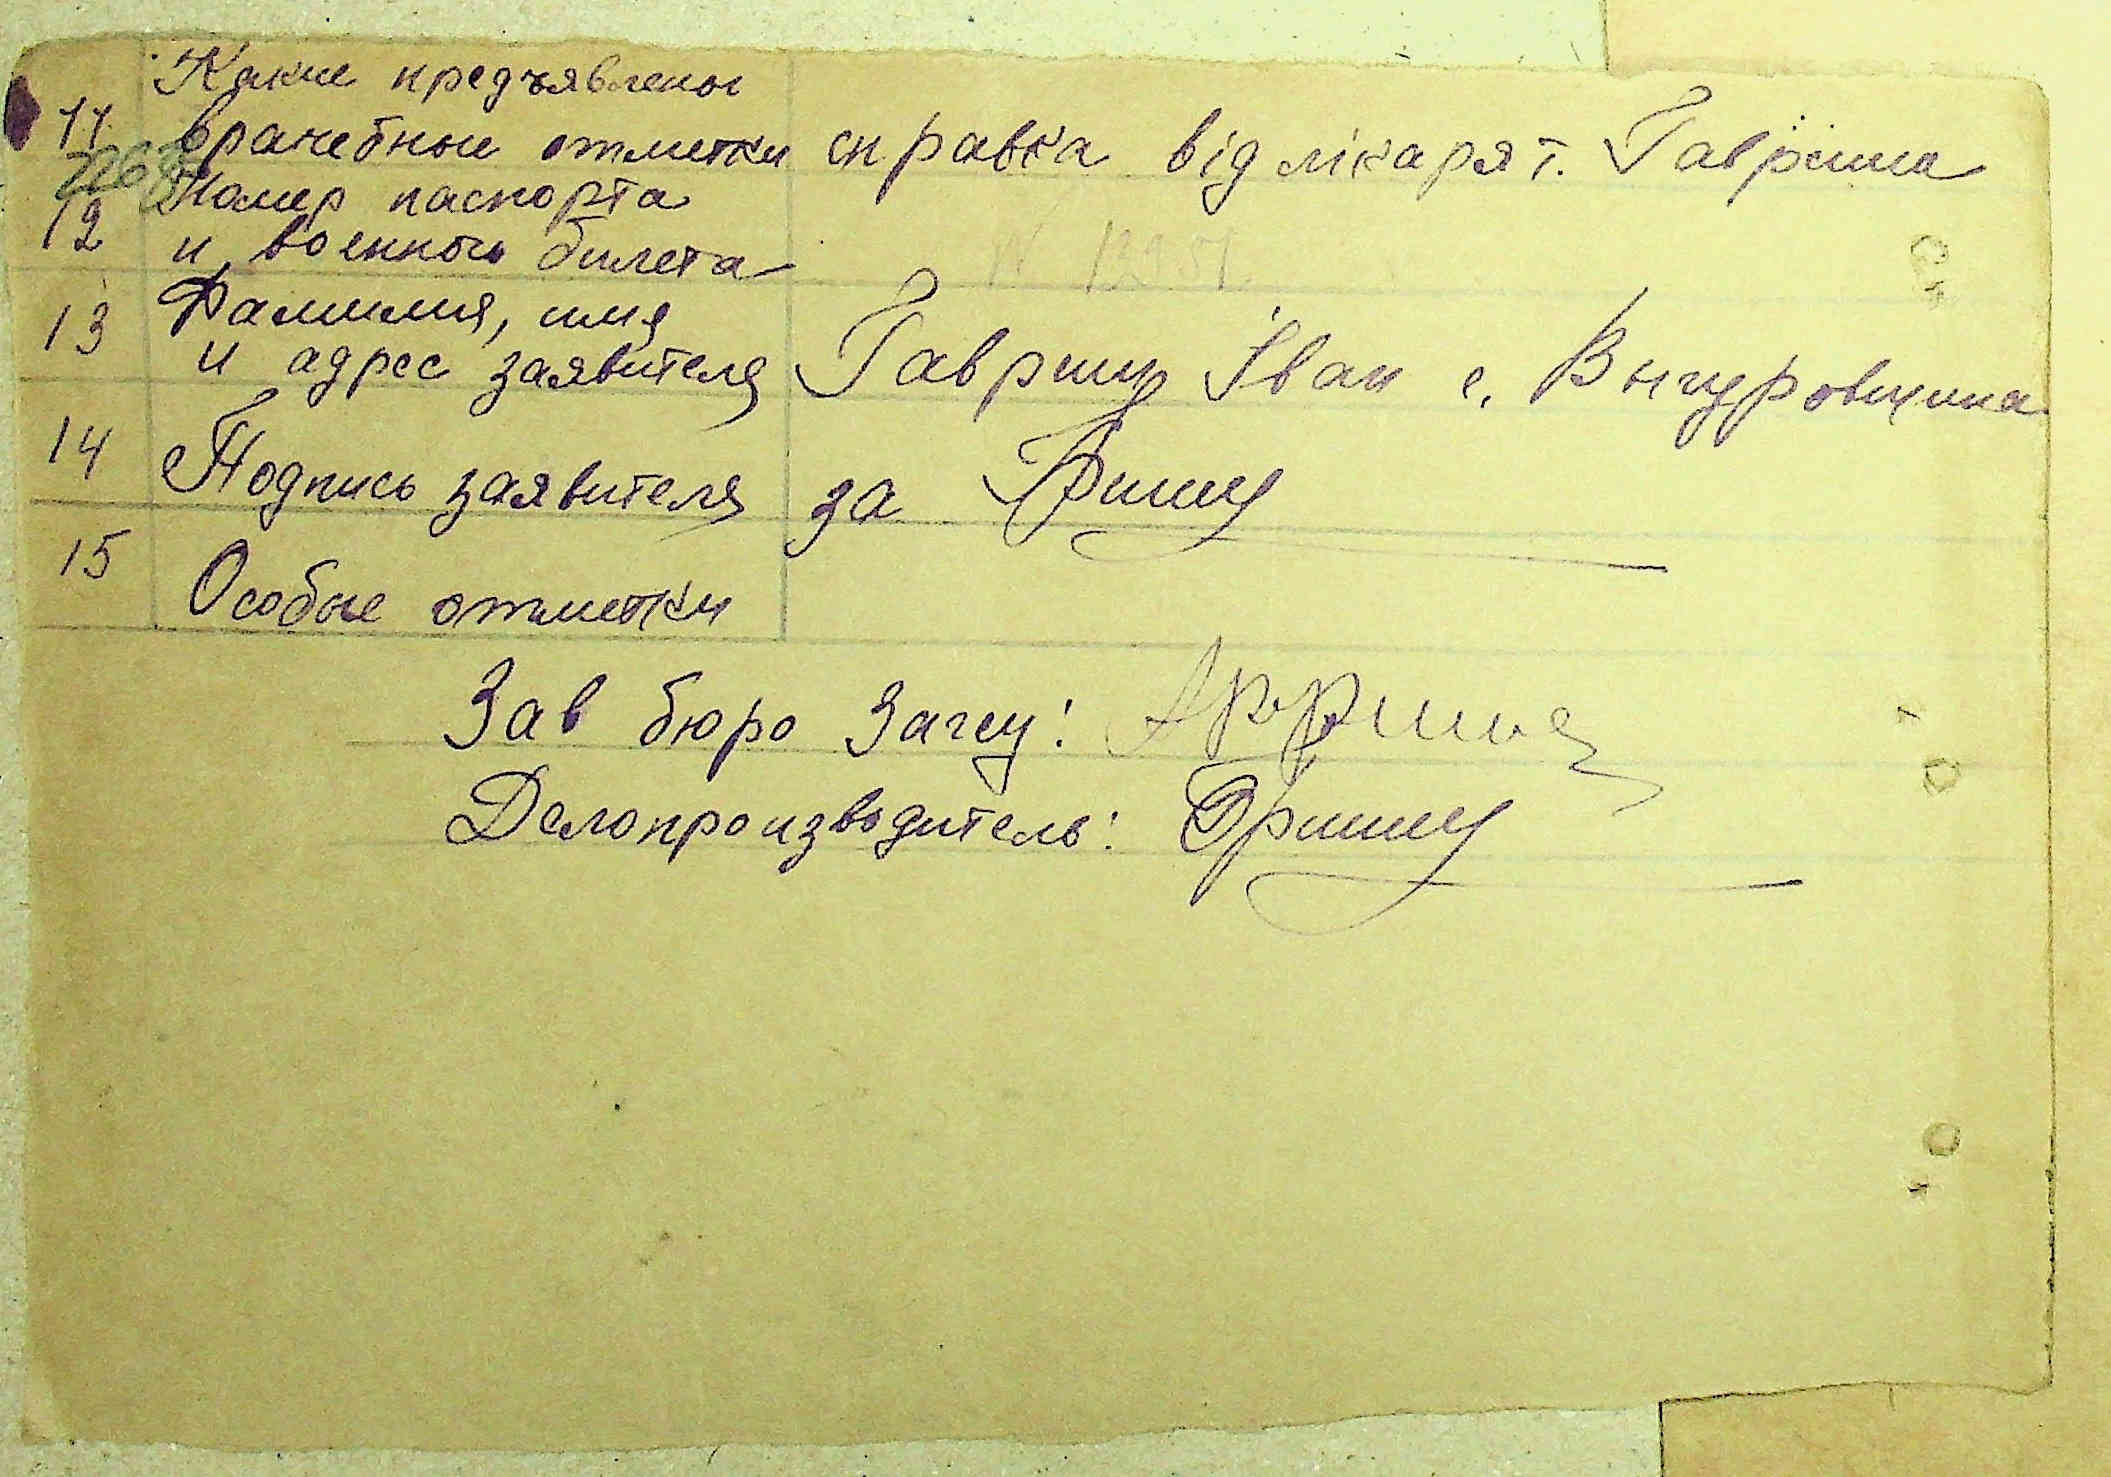 Какие предъявлены
11 врачебные отметки справка від лікаря т. Гавриша
Номер паспорта
12 и военного билета
13 Фамилия, имя
и адрес заявителя Гавриш Іван с. Выгуровщина
14 Подпись заявителя за
15 Особые отметки
Зав бюро Загсу:
Делопроизводитель: